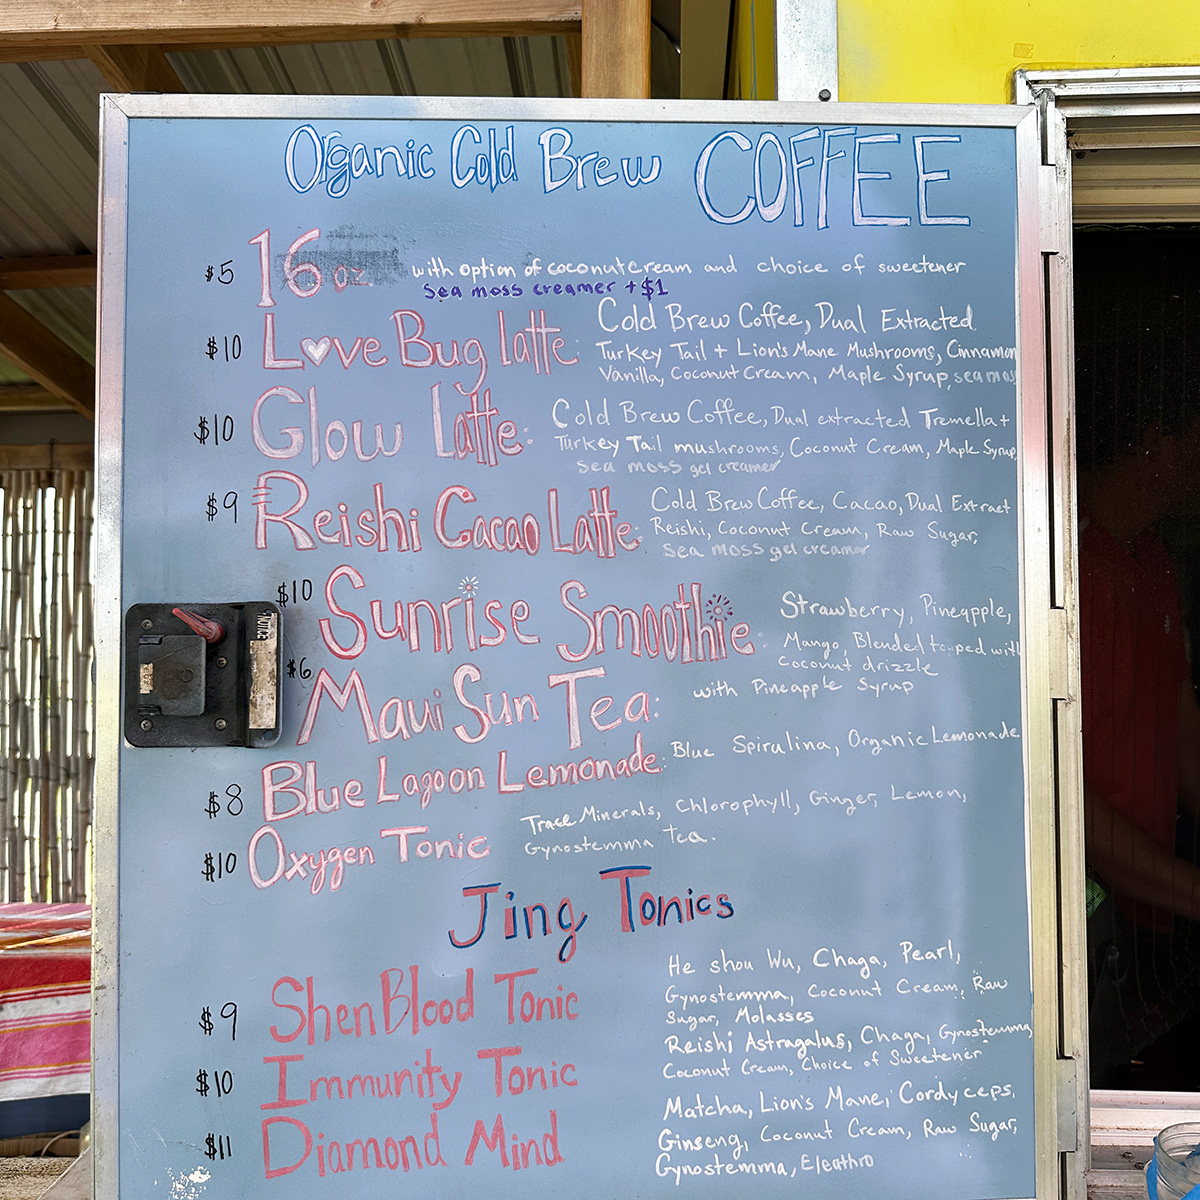 Organic Cold Brew COFFEE
$5 16 oz with option of coconut cream and choice of sweetener
Sea moss creamer + $1
$10 Love Bug latte: Cold Brew Coffee, Dual Extracted
Turkey Tail + Lion's Mane Mushrooms, Cinnamon
Vanilla, Coconut Cream, Maple Syrup, sea moss
$10 Glow Latte: Cold Brew Coffee, Dual extracted Tremella +
Turkey Tail mushrooms, Coconut Cream, Maple Syrup,
sea moss gel creamer
$9 Reishi Cacao Latte: Cold Brew Coffee, Cacao, Dual Extract
Reishi, Coconut Cream, Raw Sugar,
sea moss gel creamer
$10 Sunrise Smoothie: Strawberry, Pineapple,
Mango, Blended topped with
Coconut drizzle
$6 Maui Sun Tea: with Pineapple Syrup
$8 Blue Lagoon Lemonade: Blue Spirulina, Organic Lemonade
$10 Oxygen Tonic Trace Minerals, Chlorophyll, Ginger, Lemon,
Gynostemma Tea.
Jing Tonics
$9 Shen Blood Tonic He shou Wu, Chaga, Pearl,
Gynostemma, Coconut Cream, Raw
Sugar, Molasses
$10 Immunity Tonic Reishi Astragalus, Chaga, Gynostemma,
Coconut Cream, Choice of Sweetener
$11 Diamond Mind Matcha, Lion's Mane, Cordyceps,
Ginseng, Coconut Cream, Raw Sugar,
Gynostemma, Eleuthro
NOTICE